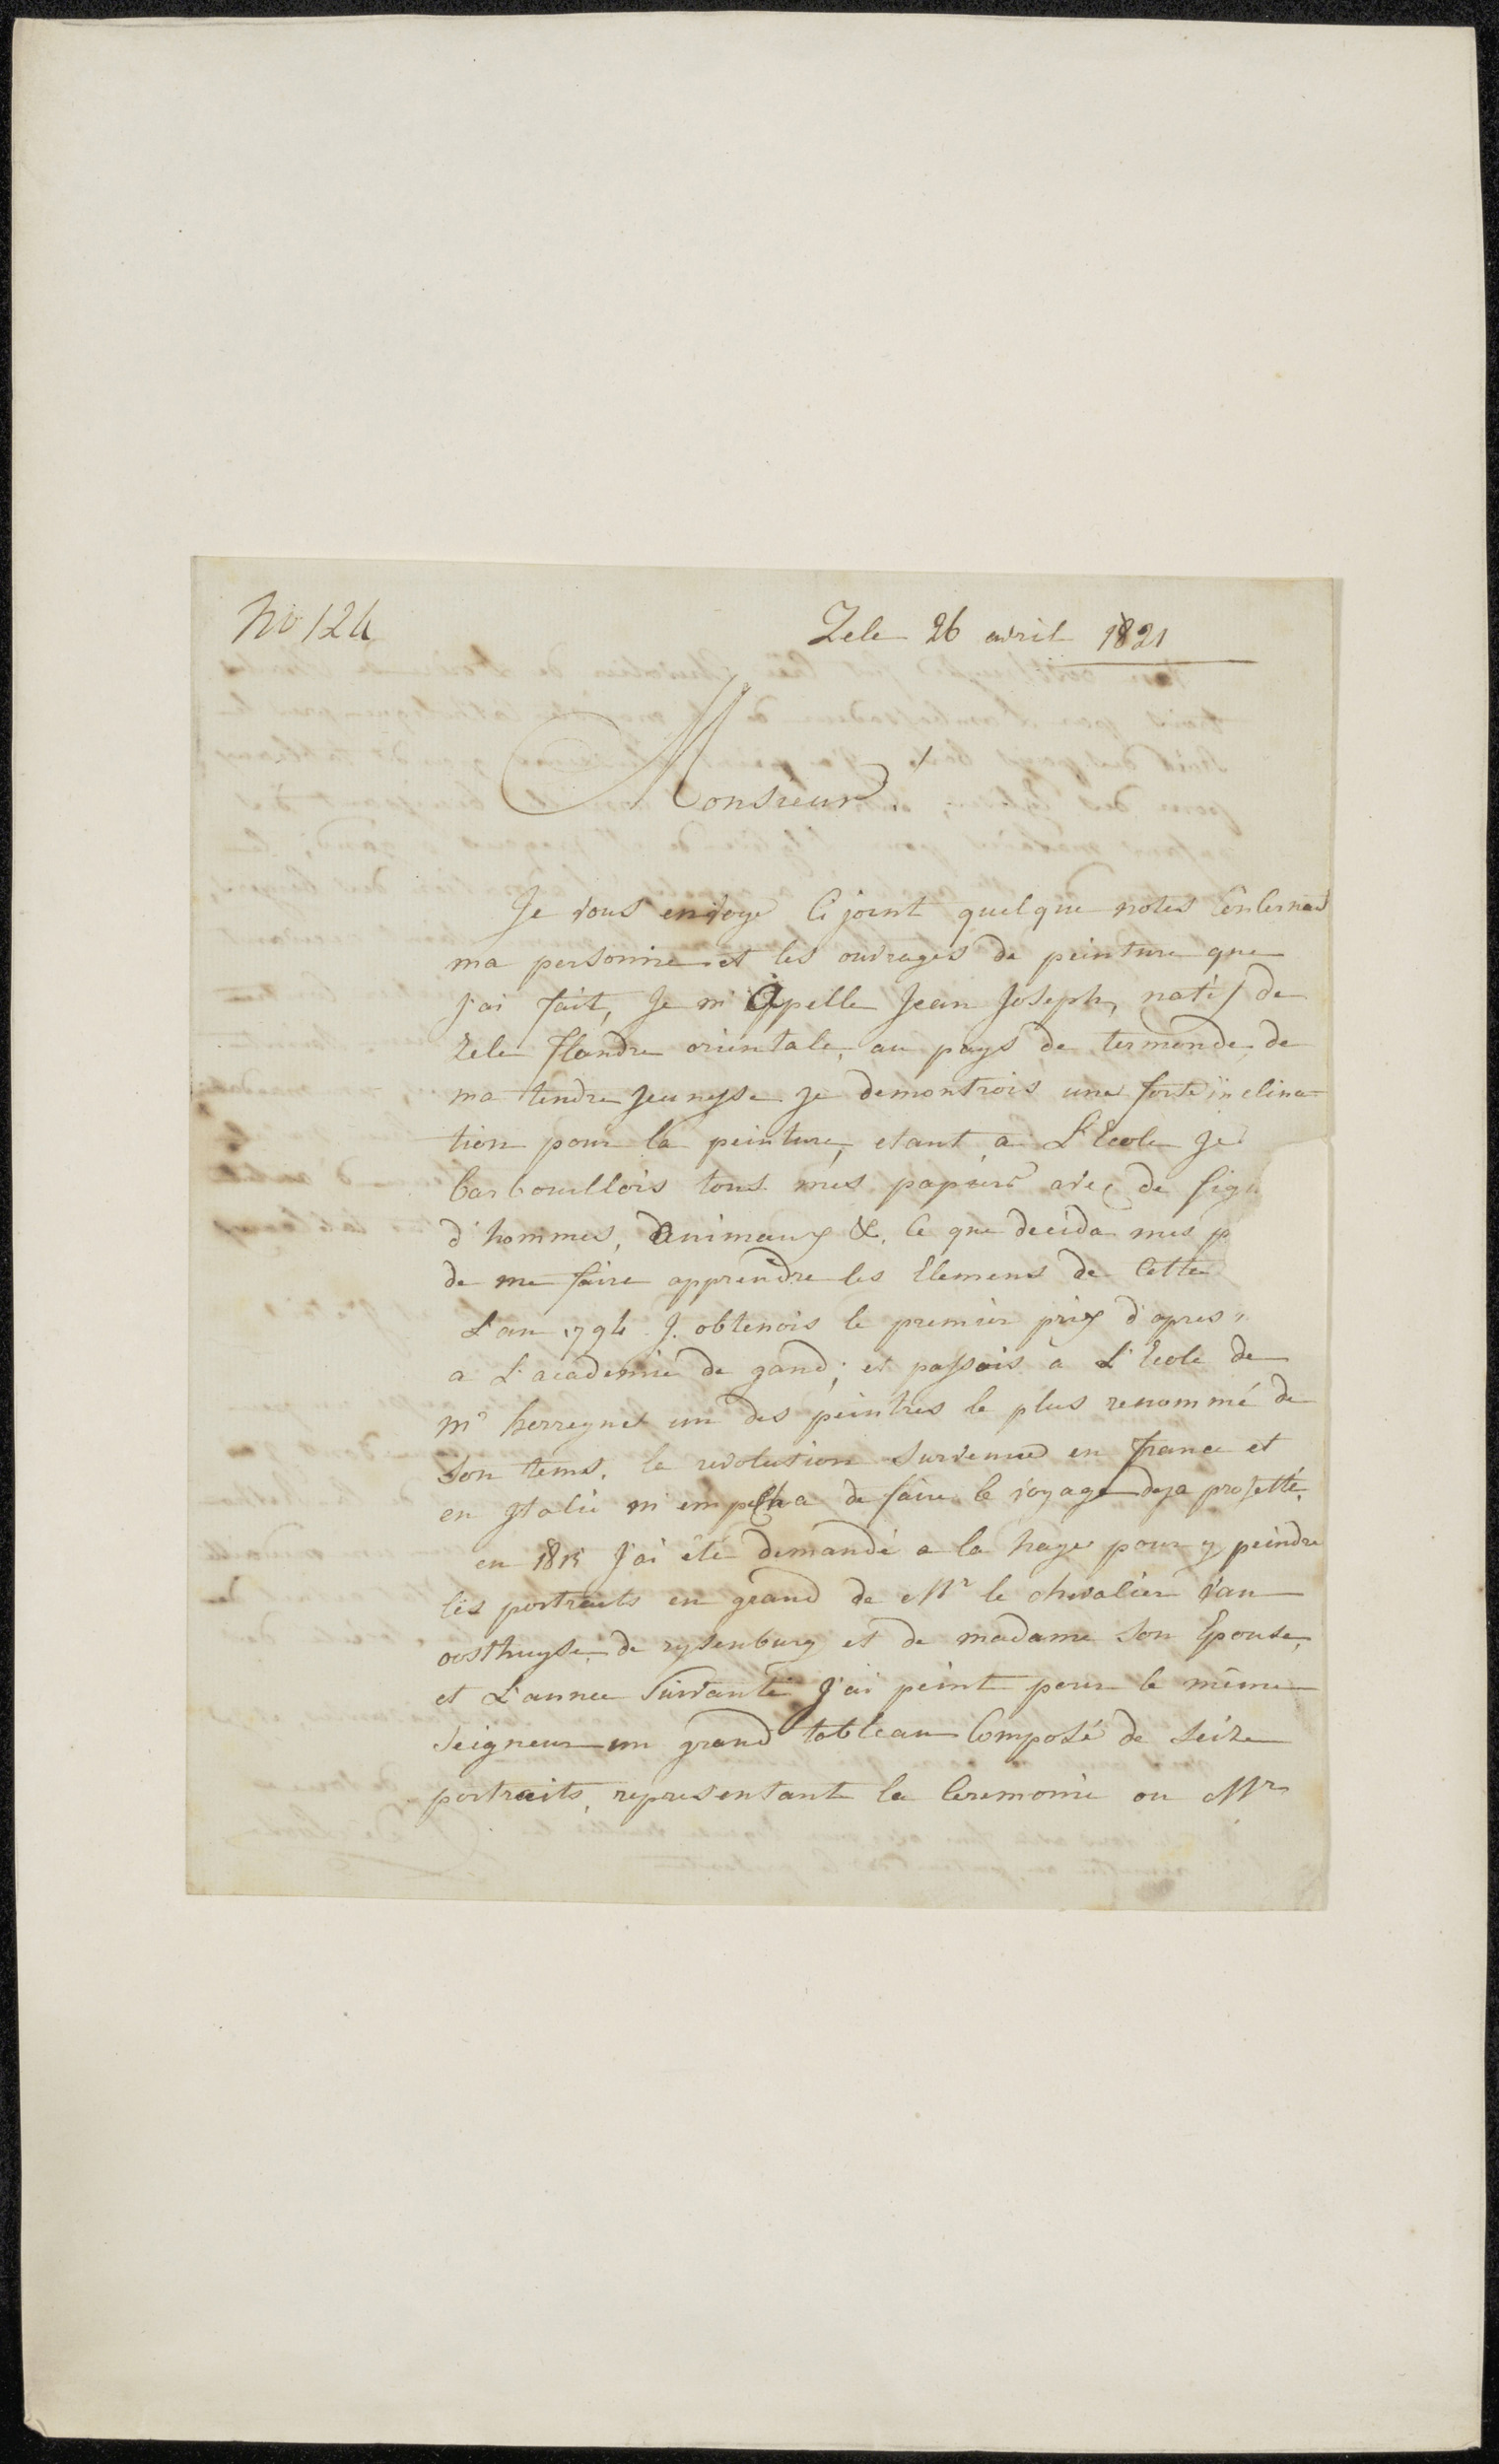 No 124
Zele 26 avril 1821
Monsieur
Je vous envoye Ci joint quelque notes Concernad
ma personne et les ouvrages de peinture que
j'ai fait, Je m'apelle Jean Joseph, natif de
Zele flandre orientale, au pays de termonde, de
ma tendre Jeunesse je demontrois une forte inclina-
tion pour la peinture, etant a L'Ecole Je
barbouillois tous mes papiers avec de figu
d'hommes, Danimaux &. Ce que decida mes p
de me faire apprendre les Elemens de Cette
L'an 1794 J. obtenois le premier prix d'apres
a L'academie de gand; et passois à L'Ecole de
mr herreyns un des peintres le plus renommé de
Son tems. la revolution Survenue en france et
en Italie m'empecha de faire le voyage deja projetté.
en 1815 J'ai été demandé a la haye pour y peindre
les portraits en grand de Mr le chevalier van
oosthuyse de rysenburg et de madame Son Epouse,
et L'année Suivante J'ai peint pour le même
Seigneur un grand tableau Composé de Seize
portraits, representant la Ceremonie ou Mr